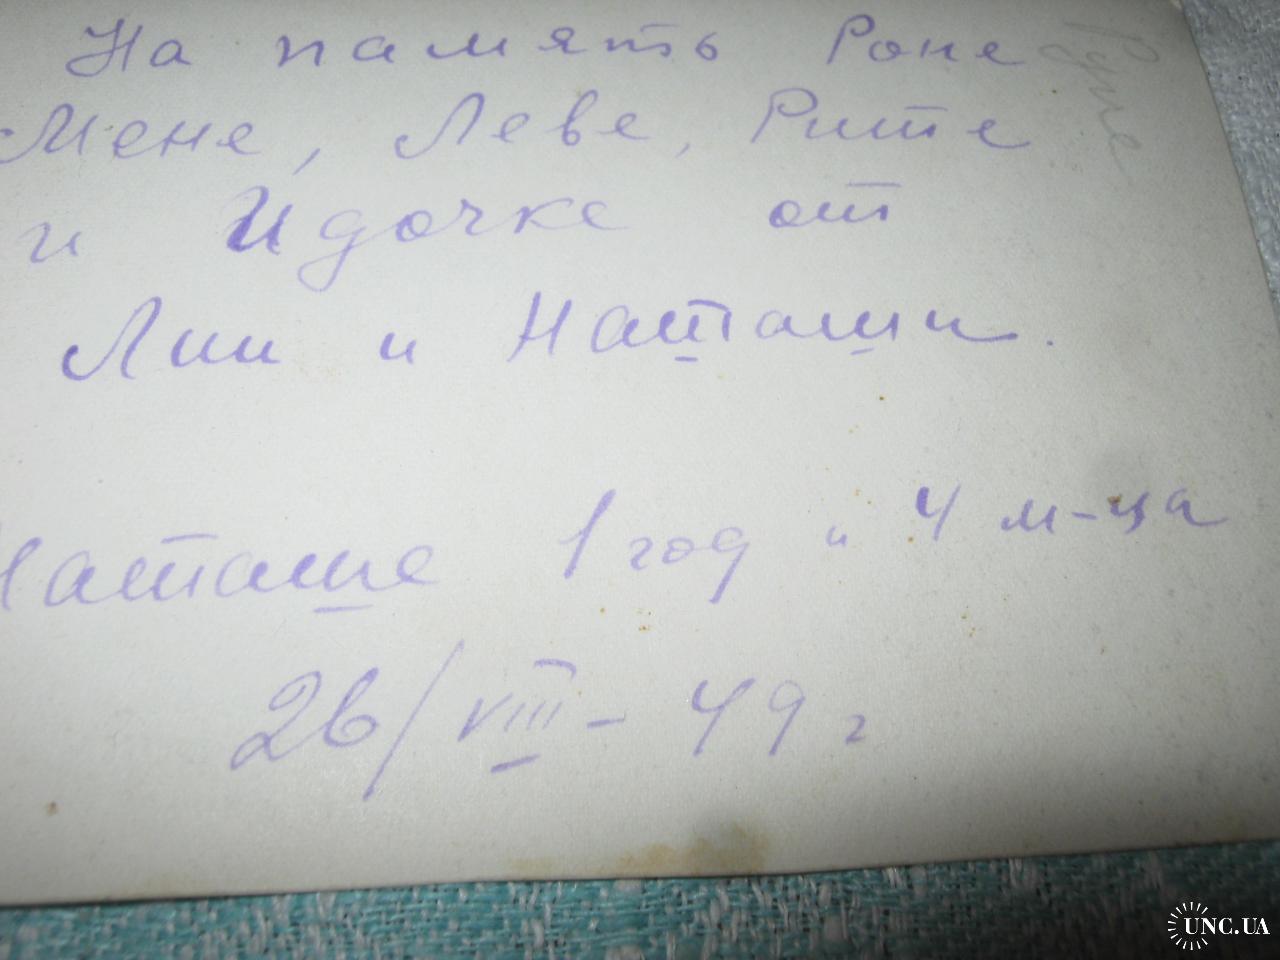 На память Роне
Мене, Леве, Рите
и Идочке от
Лии и Наташи.
Наташе 1 год и 4 м-ца
26/VIII – 49 г
UNC.UA